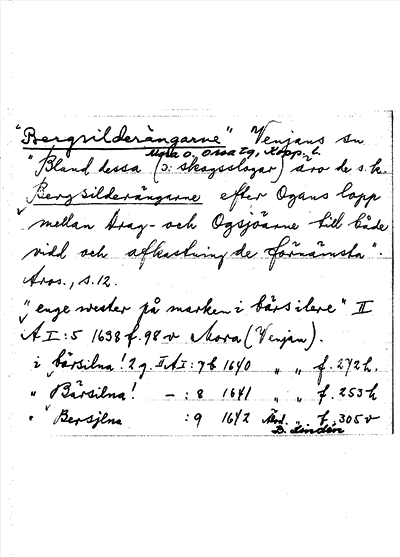 "Bergsilderängarne" Venjans sn
Mora o. Orsa tg, Kopp. l.
"Bland dessa (ɔ: skogsslogar) äro de s.k.
Bergsilderängarne efter Ogans lopp
mellan Arag- och Ogsjöarne till både
vidd och afkastning de förnämsta".
Aros., s.12.
"enge wester på marken i bärsilere" II
A I:5 1638 f.98 v Mora (Venjan).
i bärsilna! 2 g. II A I:7b 1640 " " f.272 h.
" Bärsilna! – :8 1641 " " f.253 h
" Bersjlna :9 1642 " f.305 v
B. Lindén